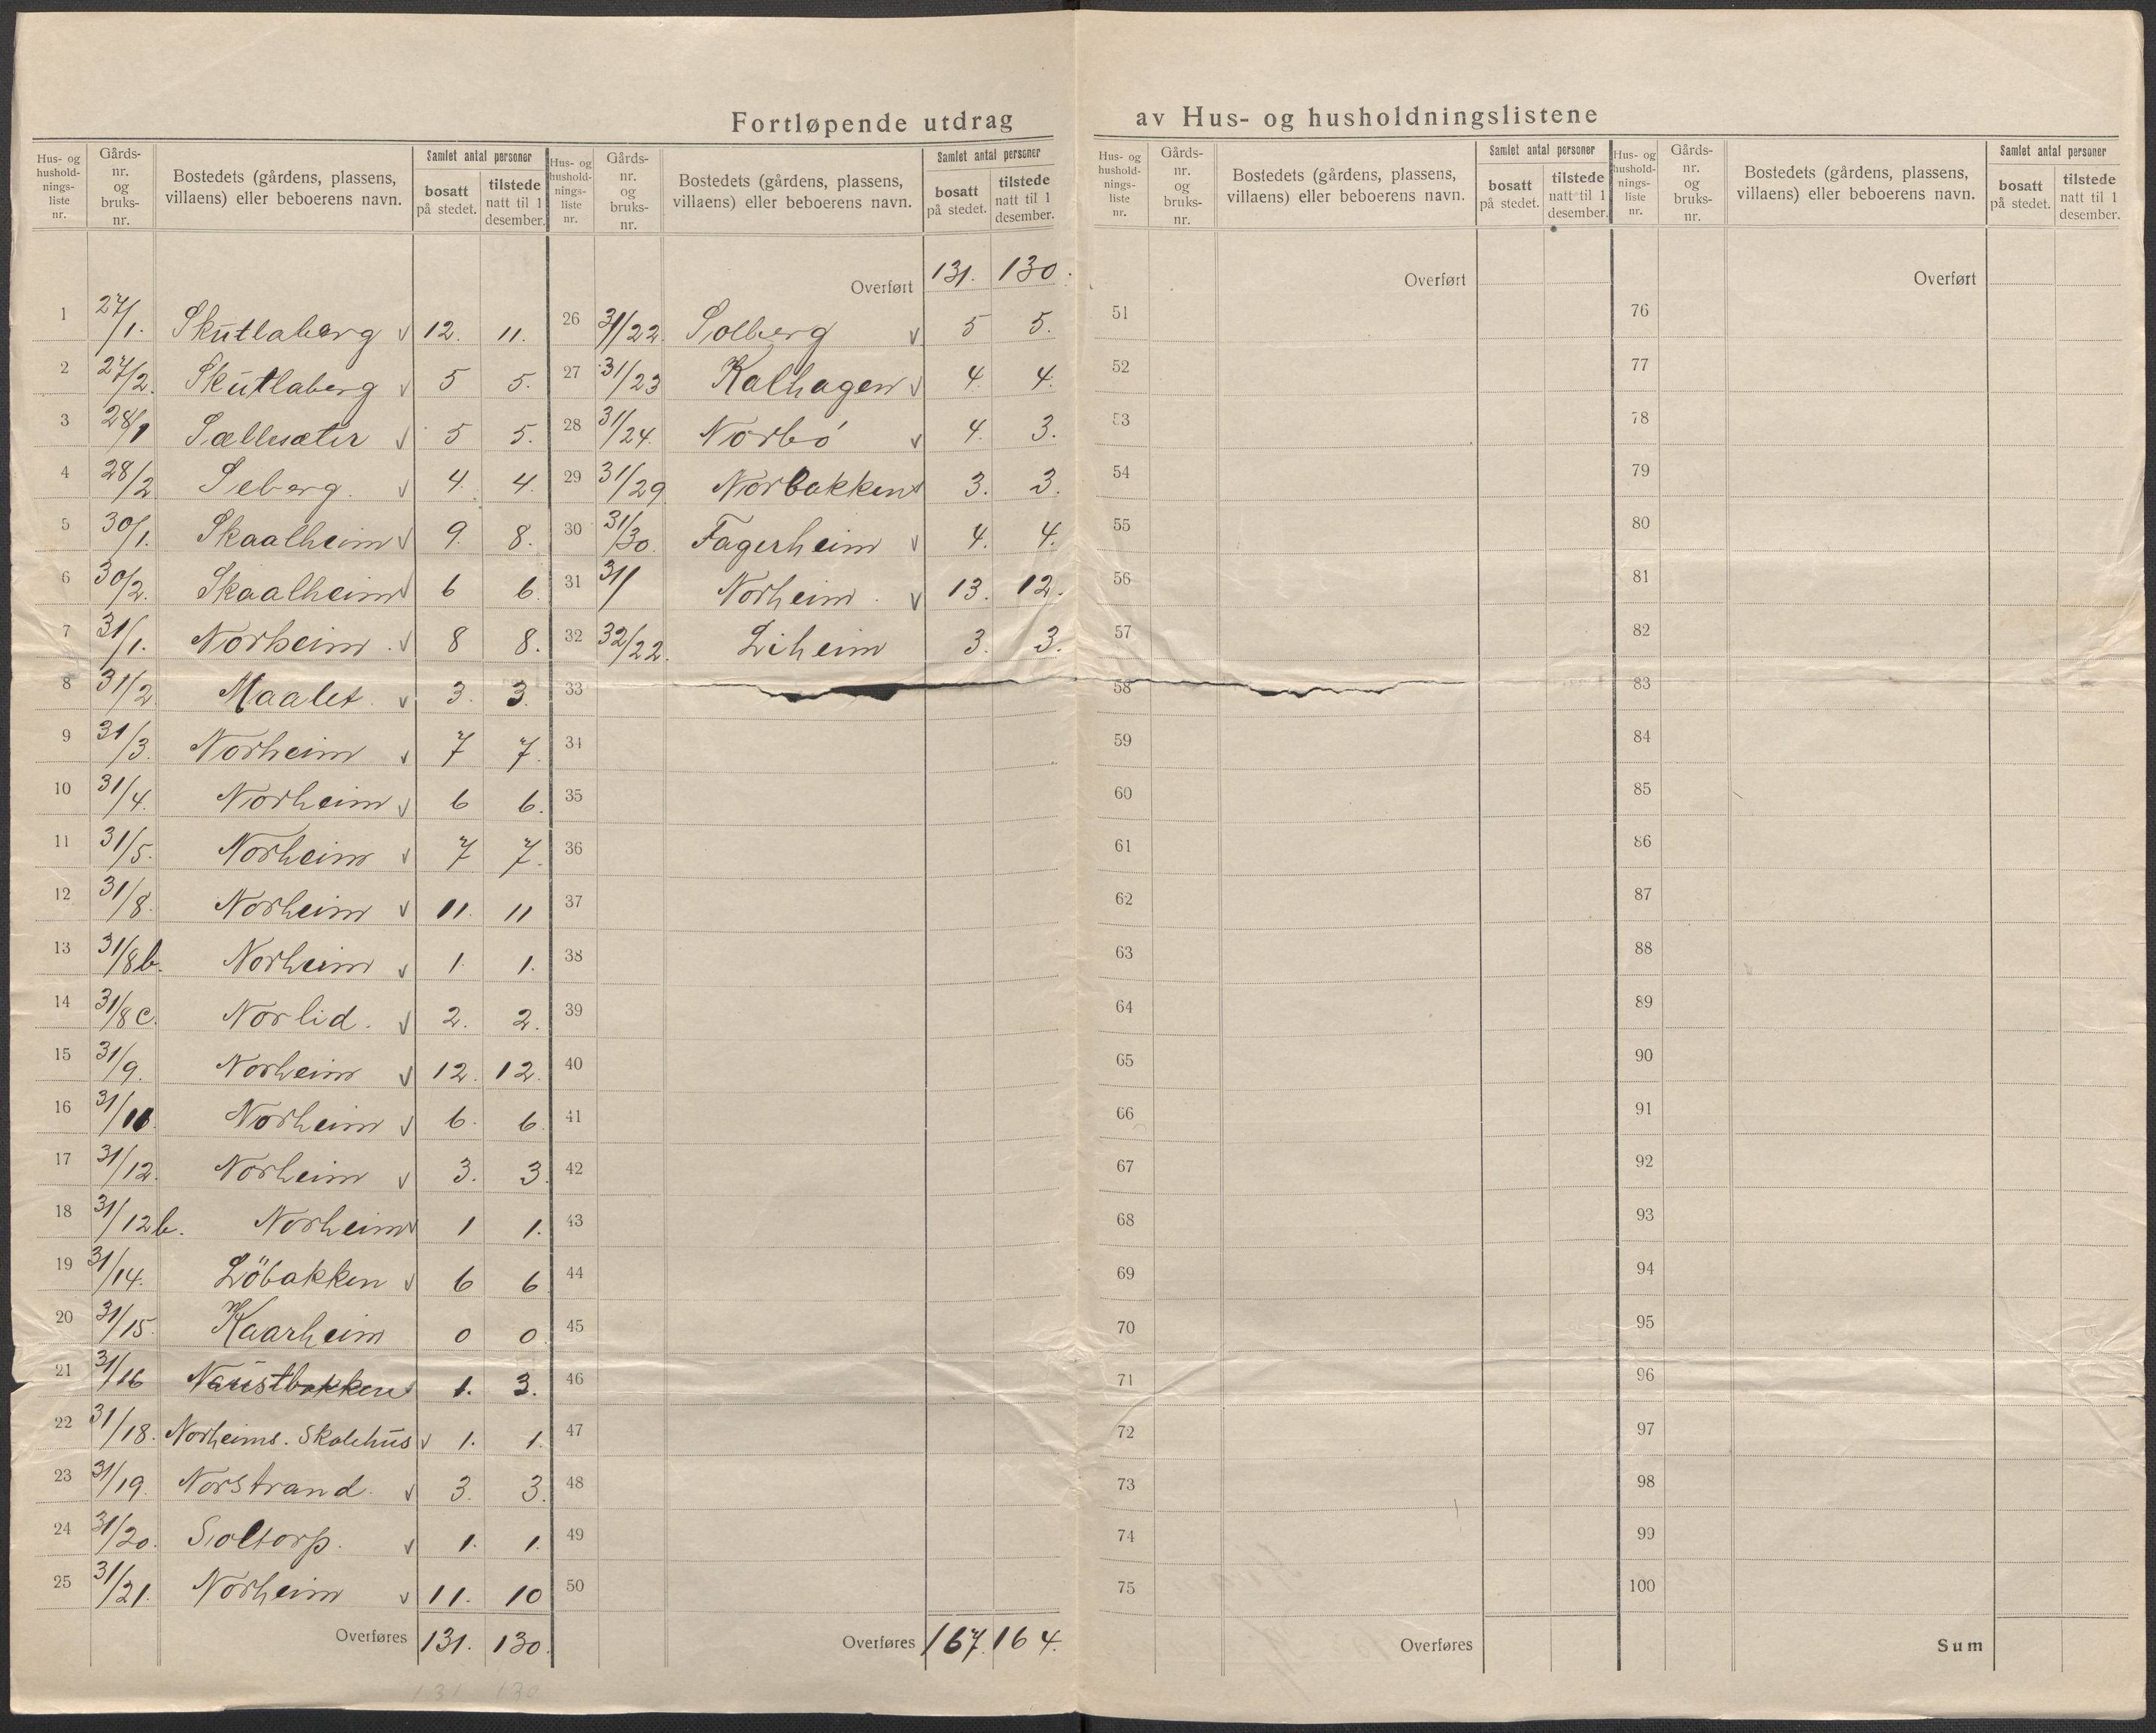 Fortløpende utdrag av Hus- og husholdningslistene
Hus- og hushold-nings-liste nr. Gårds-nr. og bruks-nr. Bostedets (gårdens, plassens, villaens) eller beboerens navn. Samlet antal personer bosatt på stedet. tilstede natt til 1 desember.
1 27/1. Skutlaberg v 12. 11.
2 27/2. Skutlaberg v 5 5.
3 28/1 Sællesæter v 5 5.
4 28/2 Seberg. v 4. 4.
5 30/1. Skaalheim v 9. 8.
6 30/2. Skaalheim v 6 6.
7 31/1. Norheim. v 8 8.
8 31/2 Maalet. v 3. 3.
9 31/3. Norheim v 7 7.
10 31/4. Norheim v 6 6.
11 31/5. Norheim v 7 7.
12 31/8. Norheim v 11. 11
13 31/8b. Norheim v 1. 1.
14 31/8c. Norlid. v 2. 2.
15 31/9. Norheim v 12. 12.
16 31/ Norheim v 6. 6.
17 31/12. Norheim v 3. 3.
18 31/12b. Norheim v 1 1.
19 31/14. Löbakken v 6 6
20 31/15. Kaarheim 0 0
21 31/16 Naustbakken v 1. 3.
22 31/18. Norheims. Skolehus v 1. 1.
23 31/19. Norstrand. v 3. 3.
24 31/20. Soltorp. v 1. 1.
25 31/21. Norheim v 11. 10
Overføres 131. 130.
131 130
Hus- og hushold-nings-liste nr. Gårds-nr. og bruks-nr. Bostedets (gårdens, plassens, villaens) eller beboerens navn. Samlet antal personer bosatt på stedet. tilstede natt til 1 desember.
Overført 131. 130.
26 31/22. Solberg v 5 5.
27 31/23 Kalhagen v 4. 4.
28 31/24. Norbó v 4. 3.
29 31/29 Norbakken v 3. 3.
30 31/30. Fagerheim v 4. 4.
31 31/ Norheim. v 13. 12.
32 32/22. Liheim 3. 3.
33
34
35
36
37
38
39
40
41
42
43
44
45
46
47
48
49
50
Overføres 167. 164.
Hus- og hushold-nings-liste nr. Gårds-nr. og bruks-nr. Bostedets (gårdens, plassens, villaens) eller beboerens navn. Samlet antal personer bosatt på stedet. tilstede natt til 1 desember.
Overført
51
52
53
54
55
56
57
58
59
60
61
62
63
64
65
66
67
68
69
70
71
72
73
74
75
Overføres
Hus- og hushold-nings-liste nr. Gårds-nr. og bruks-nr. Bostedets (gårdens, plassens, villaens) eller beboerens navn. Samlet antal personer bosatt på stedet. tilstede natt til 1 desember.
Overført
76
77
78
79
80
81
82
83
84
85
86
87
88
89
90
91
92
93
94
95
96
97
98
99
100
Sum